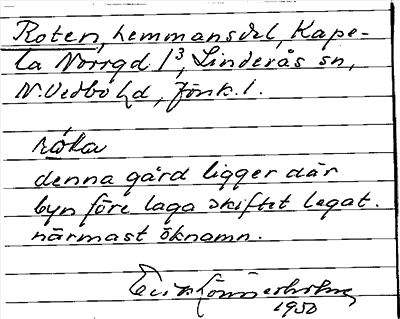 Roten, hemmansdel, Kape-
la Norrgd 1³, Linderås sn,
N. Vedbo hd, Jönk. l.
róta
denna gård ligger där
byn före laga skiftet legat.
närmast öknamn.
Erik Lönnerholm
1950